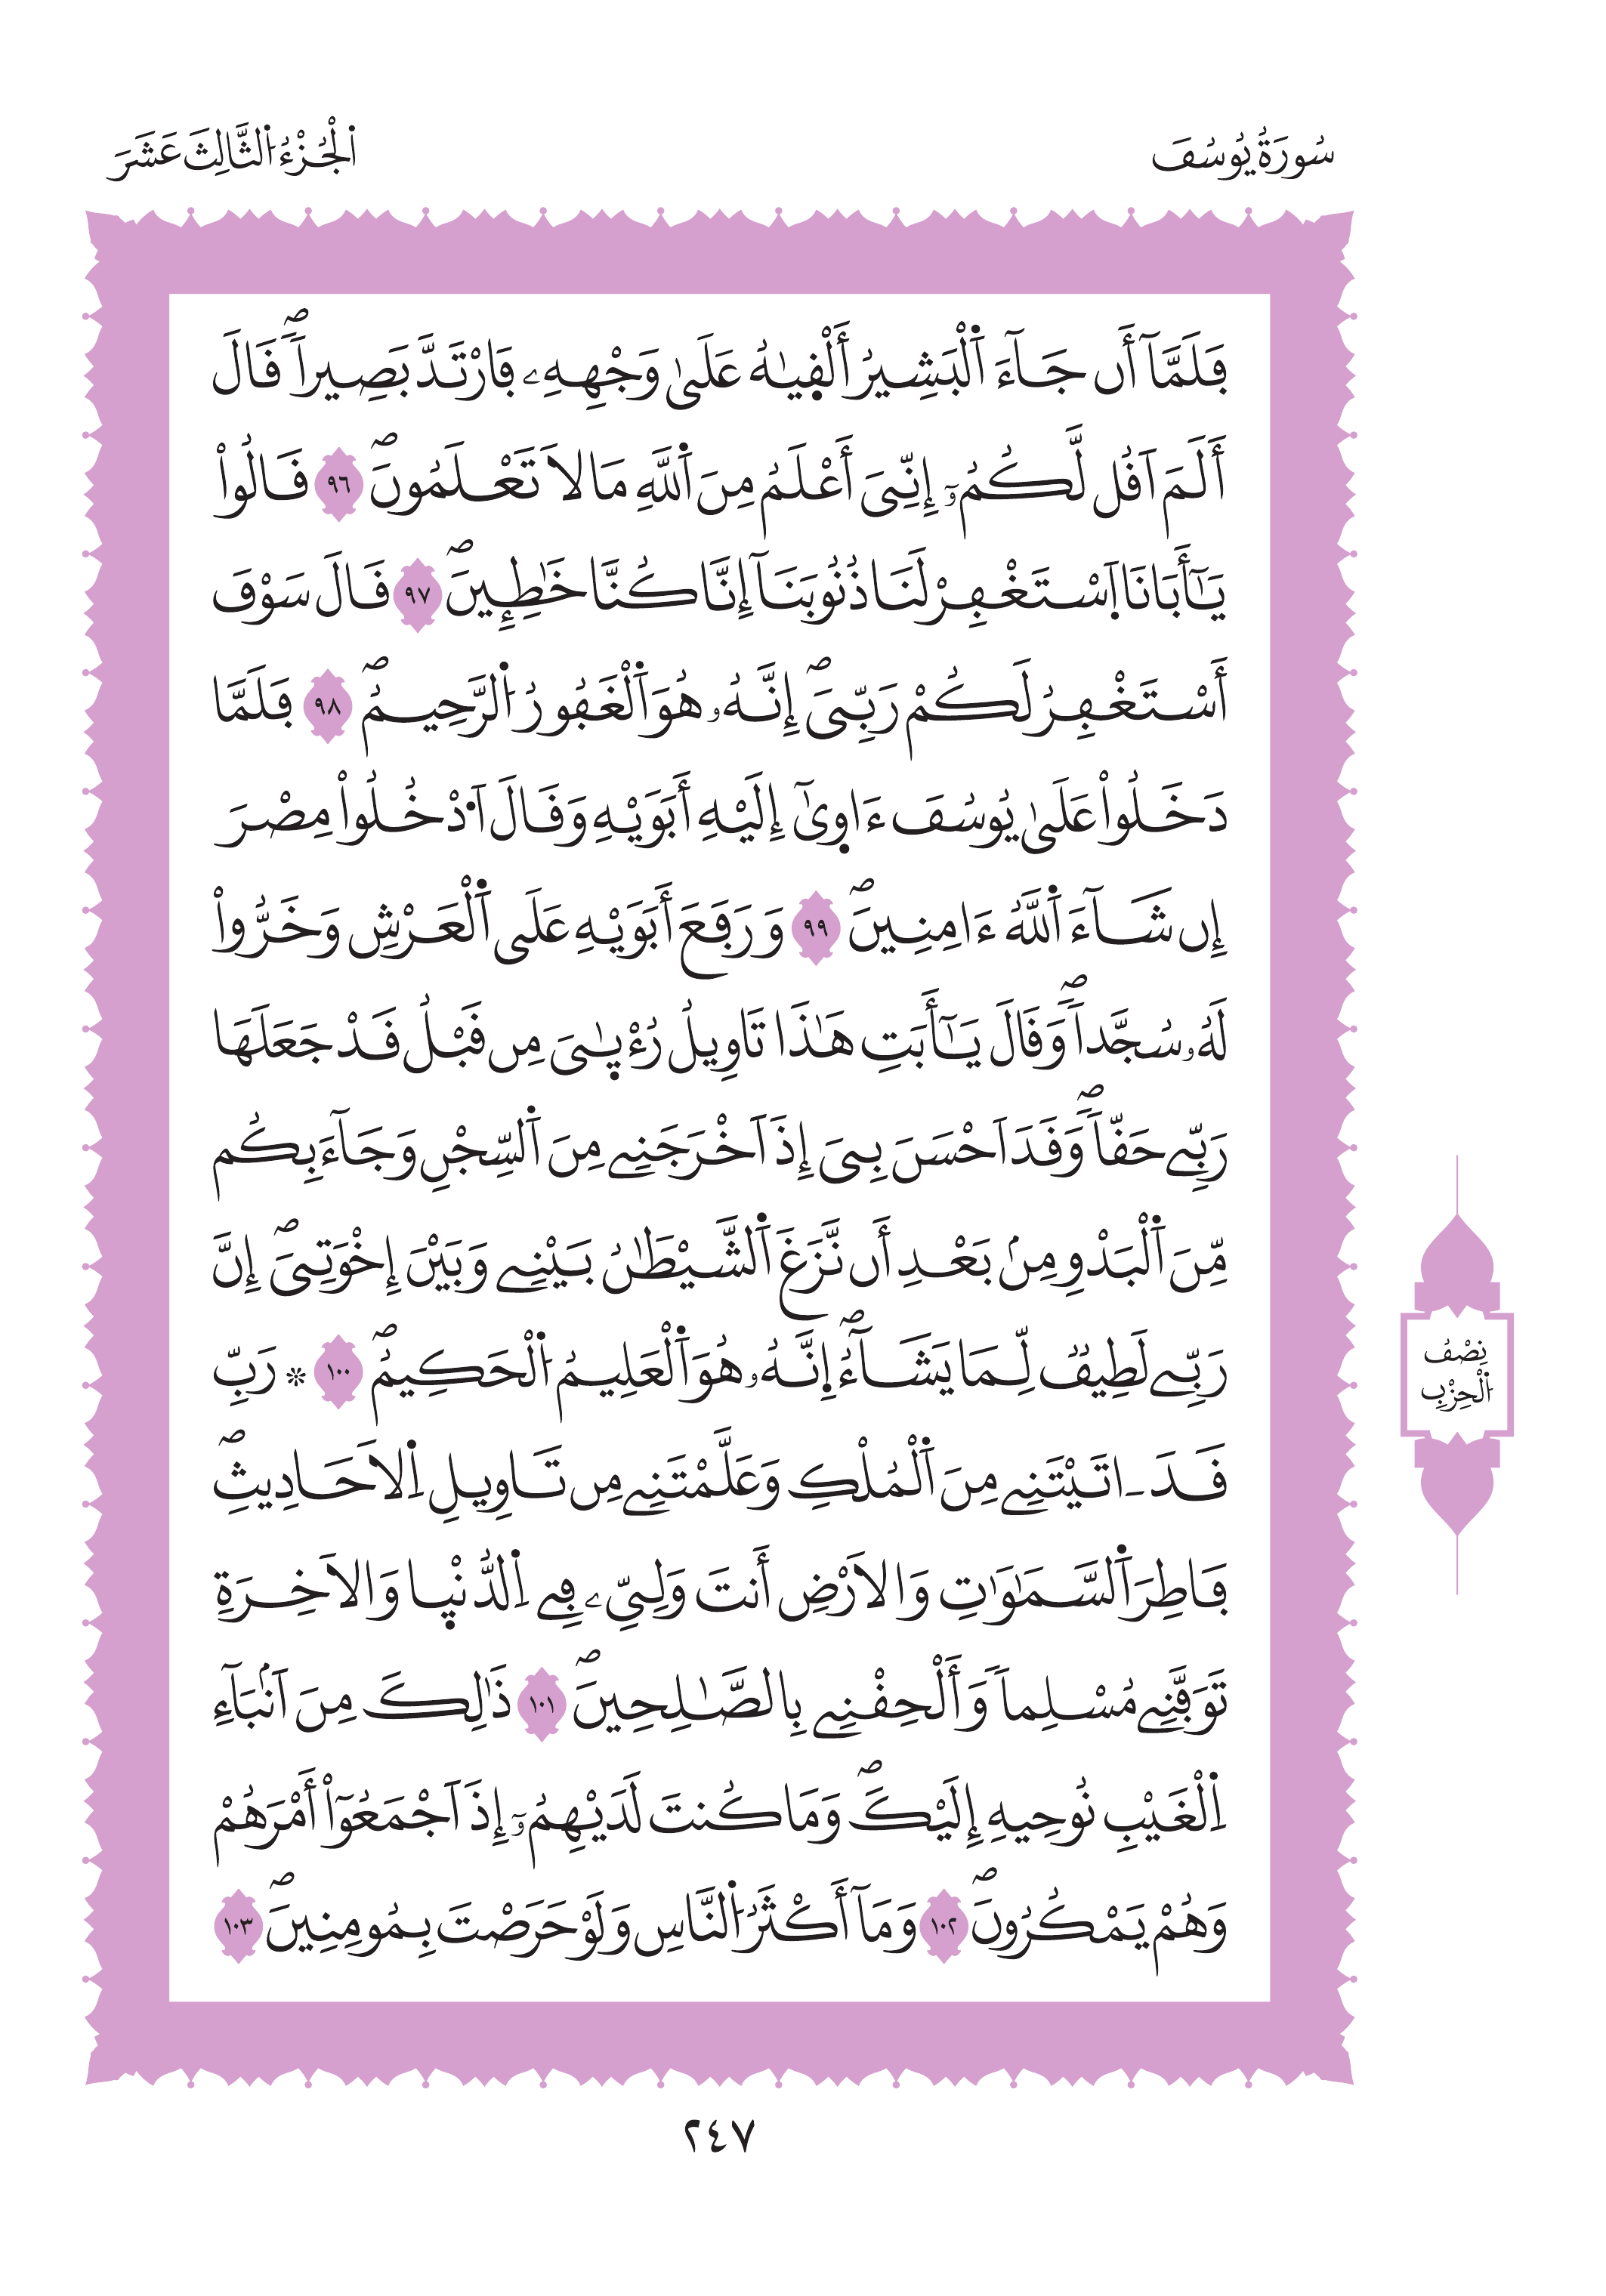 سُورَةُ يُوسُفَ
اَ۬لْجُزْءُ اُ۬لثَّالِثَ عَشَرَ
فَلَمَّآ أَن جَآءَ اَ۬لْبَشِيرُ أَلْق۪يٰهُ عَلَيٰ وَجْهِهِۦ فَارْتَدَّ بَصِيراٗۖ قَالَ
أَلَمَ اَقُل لَّكُمُۥٓ إِنِّيَ أَعْلَمُ مِنَ اَ۬للَّهِ مَا لَا تَعْلَمُونَۖ ٩٦ قَالُواْ
يَٰٓأَبَانَا اَ۪سْتَغْفِرْ لَنَا ذُنُوبَنَآ إِنَّا كُنَّا خَٰطِـِٕينَۖ ٩٧ قَالَ سَوْفَ
أَسْتَغْفِرُ لَكُمْ رَبِّيَۖ إِنَّهُۥ هُوَ اَ۬لْغَفُورُ اُ۬لرَّحِيمُۖ ٩٨ فَلَمَّا
دَخَلُواْ عَلَيٰ يُوسُفَ ءَاو۪يٰٓ إِلَيْهِ أَبَوَيْهِ وَقَالَ اَ۟دْخُلُواْ مِصْرَ
إِن شَآءَ اَ۬للَّهُ ءَامِنِينَۖ ٩٩ وَرَفَعَ أَبَوَيْهِ عَلَي اَ۬لْعَرْشِ وَخَرُّواْ
لَهُۥ سُجَّداٗۖ وَقَالَ يَٰٓأَبَتِ هَٰذَا تَاوِيلُ رُءْيٰ۪يَ مِن قَبْلُ قَدْ جَعَلَهَا
رَبِّے حَقّاٗۖ وَقَدَ اَحْسَنَ بِيَ إِذَ اَخْرَجَنِے مِنَ اَ۬لسِّجْنِ وَجَآءَ بِكُم
مِّنَ اَ۬لْبَدْوِ مِنۢ بَعْدِ أَن نَّزَغَ اَ۬لشَّيْطَٰنُ بَيْنِے وَبَيْنَ إِخْوَتِيَۖ إِنَّ
رَبِّے لَطِيفٞ لِّمَا يَشَآءُۖ اِ۪نَّهُۥ هُوَ اَ۬لْعَلِيمُ اُ۬لْحَكِيمُۖ ١٠٠ ۞ رَبِّ
قَدَ ـ اتَيْتَنِے مِنَ اَ۬لْمُلْكِ وَعَلَّمْتَنِے مِن تَاوِيلِ اِ۬لَاحَادِيثِۖ
فَاطِرَ اَ۬لسَّمَٰوَٰتِ وَالَارْضِ أَنتَ وَلِيِّۦ فِے اِ۬لدُّنْي۪ا وَالَاخِرَةِ
تَوَفَّنِے مُسْلِماٗ وَأَلْحِقْنِے بِالصَّٰلِحِينَۖ ١٠١ ذَٰلِكَ مِنَ اَنۢبَآءِ
اِ۬لْغَيْبِ نُوحِيهِ إِلَيْكَۖ وَمَا كُنتَ لَدَيْهِمُۥٓ إِذَ اَجْمَعُوٓاْ أَمْرَهُمْ
وَهُمْ يَمْكُرُونَۖ ١٠٢ وَمَآ أَكْثَرُ اُ۬لنَّاسِ وَلَوْ حَرَصْتَ بِمُومِنِينَۖ ١٠٣
نِصْفُ
اُ۬لْحِزْبِ
٢٤٧